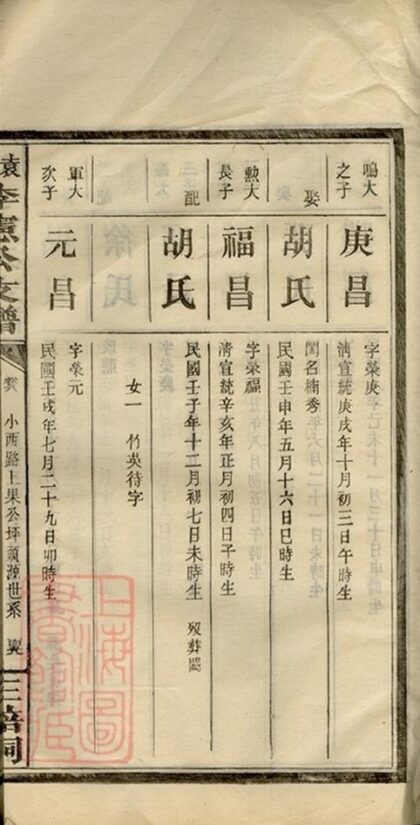 鳴大之子
庚昌
字榮庚
清宣統庚戌年十月初三日午時生
娶
胡氏
閨名楠秀
民國壬申年五月十六日巳時生
勲大長子
福昌
字榮福
清宣統辛亥年正月初四日子時生
配
胡氏
民國壬子年十二月初七日未時生 歿葬闕
女一 竹英待字
軍大次子
元昌
字榮元
民國壬戌年七月二十九日卯時生
袁李憲公支譜
小西路上果公坪頭源世系
上海圖書館藏